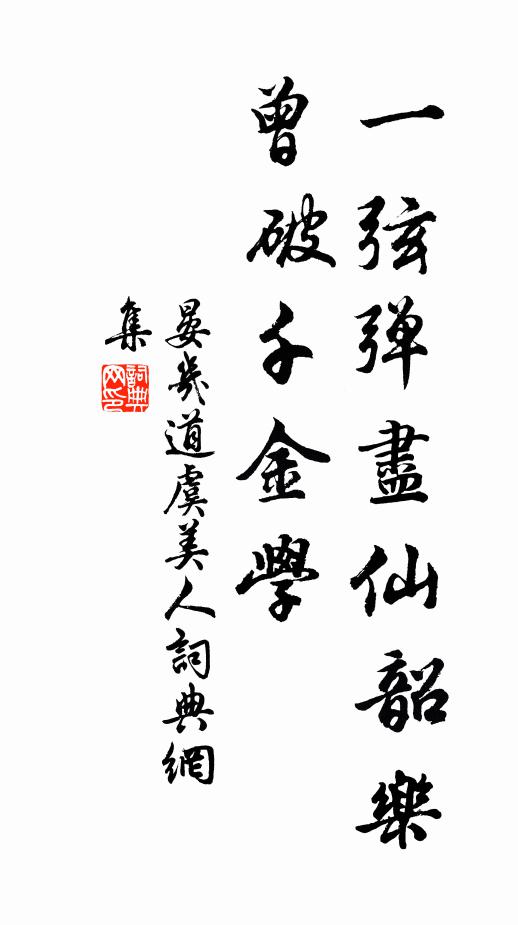 一弦弹盡仙韶樂
曾破千金學
晏幾道虞美人詞典網
集
詞典
网印